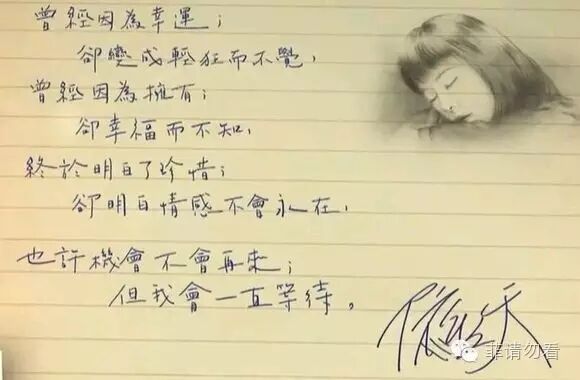 曾經因為幸運；
卻變成輕狂而不覺，
曾經因為擁有；
卻幸福而不知，
終於明白了珍惜；
卻明白情感不會永在，
也許機會不會再來；
但我會一直等待。
菲请勿看